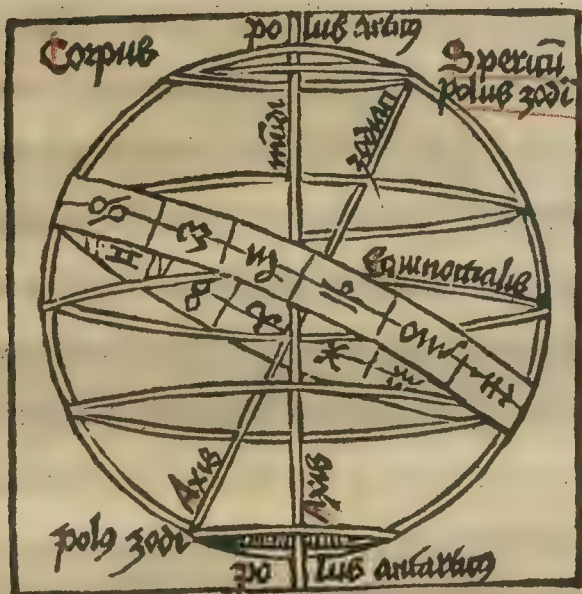 polus artic9
Corpus
Spericū
polus zodi
mūdi
zodiaci
Equinoctialis
Axis
Axis
pol9 zodi
polus antartic9